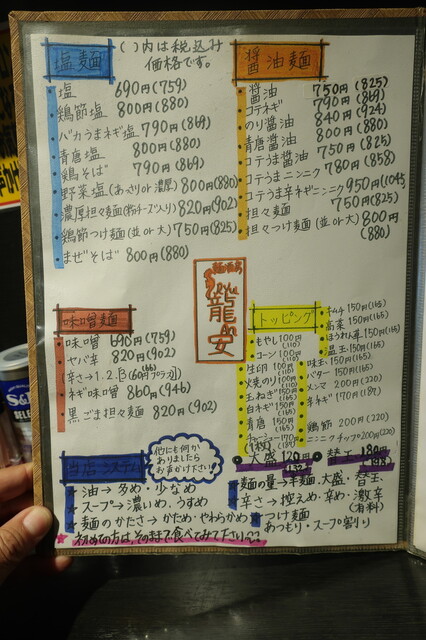 塩麺
( )内は税込み
価格です。
塩 690円(759)
鶏節塩 800円(880)
バカうまネギ塩 790円(869)
青唐塩 800円(880)
鶏そば 790円(869)
野菜塩(あっさりor濃厚) 800円(880)
濃厚担々麺(粉チーズ入り) 820円(902)
鶏節つけ麺(並or大) 750円(825)
まぜそば 800円(880)
醤油麺
醤油 750円(825)
コテネギ 790円(869)
のり醤油 840円(924)
青唐醤油 800円(880)
コテうま醤油 750円(825)
コテうまニンニク 780円(858)
コテうま辛ネギニンニク 950円(1045)
担々麺 750円(825)
担々つけ麺(並or大) 800円
(880)
龍
安
味噌麺
味噌 690円(759)
ヤバ辛 820円(902)
(辛さ→1,2,3(60円プラス))
(66)
ネギ味噌 860円(946)
黒ごま担々麺 820円(902)
トッピング
もやし 100円
(110)
コーン 100円
(110)
生卵 100円
(110)
焼のり 100円
(110)
玉ねぎ 150円
(165)
白ネギ 150円
(165)
青唐 150円
(165)
チャーシュー 170円
(1枚) (187)
キムチ 150円(165)
高菜 150円(165)
ほうれん草 150円(165)
温玉 150円(165)
味玉 150円(165)
バター 150円(165)
メンマ 200円(220)
辛ネギ 170円(187)
鶏節 200円(220)
ニンニクチップ 200円(220)
大盛 120円
(132)
替玉 180円
(198)
当店システム
他にも何か
ありましたら
お声かけ下さい!
油→多め・少なめ
スープ→濃いめ、うすめ
麺のかたさ→かため・やわらかめ
初めての方は、そのままで食べてみて下さい
麺の量→半麺、大盛・替玉
辛さ→控えめ、辛め、激辛
(有料)
つけ麺
あつもり・スープ割り